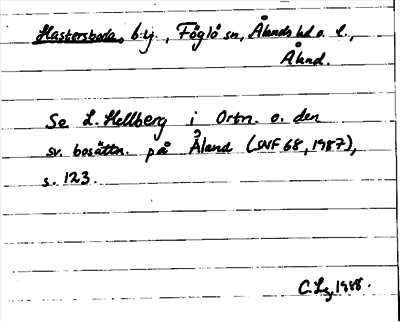 Hastersboda, by., Föglö sn, Ålands hd o. l.,
Åland.
Se L. Hellberg i Ortn. o. den
sv. bosättn. på Åland (SNF 68, 1987),
s. 123.
1988.